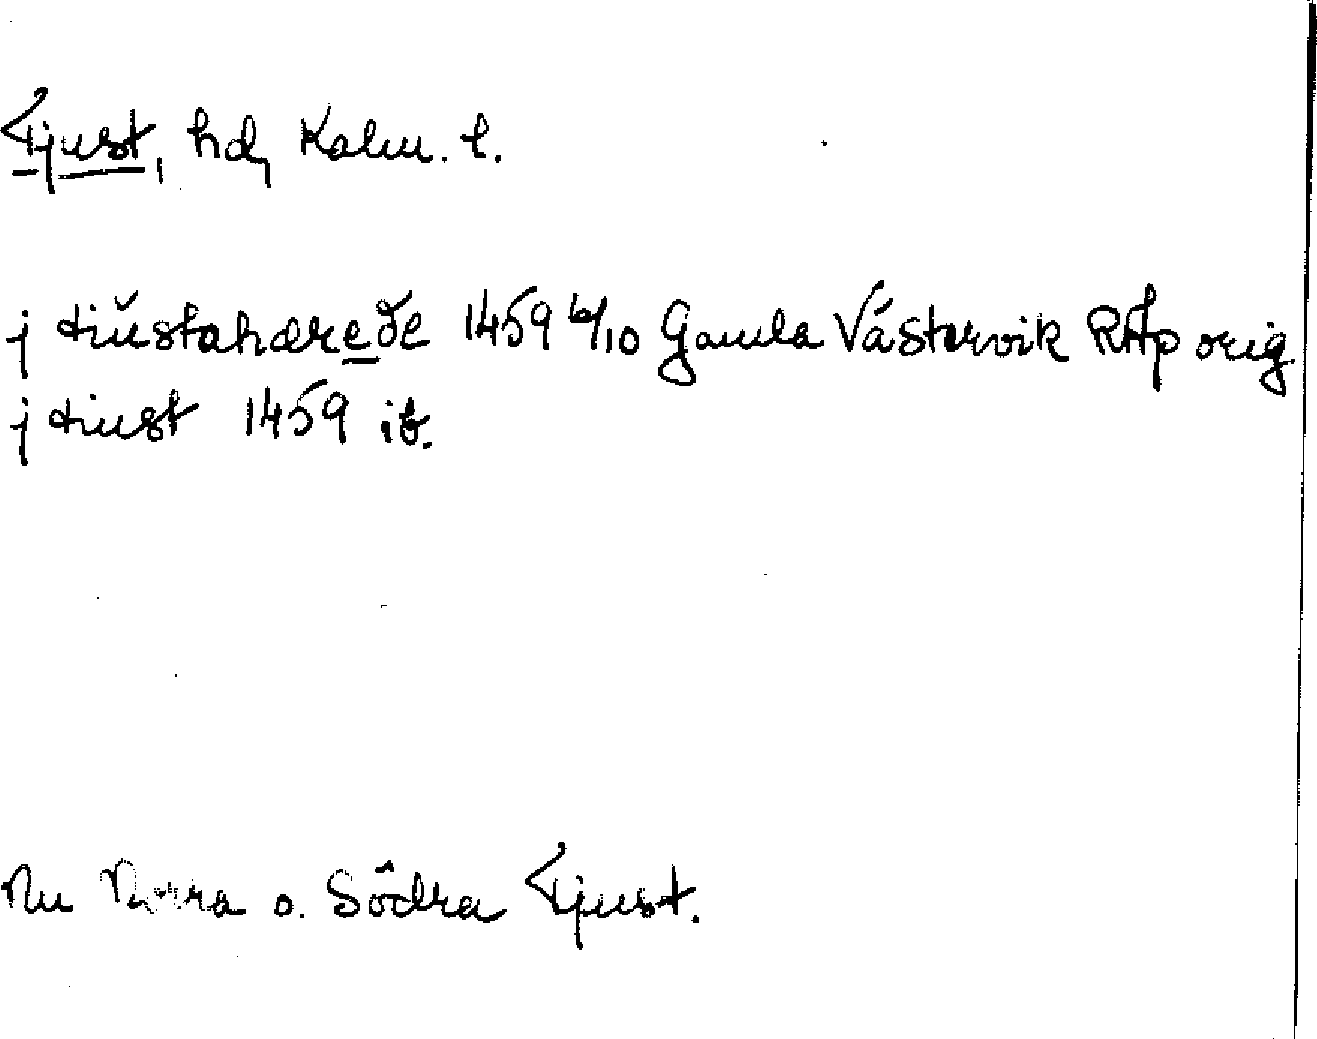 Tjust, hd, Kalm. l.
j tiŭstahærede 1459 6/10 Gamla Västervik RAp orig
j tiust 1459 ib.
Nu Norra o. Södra Tjust.